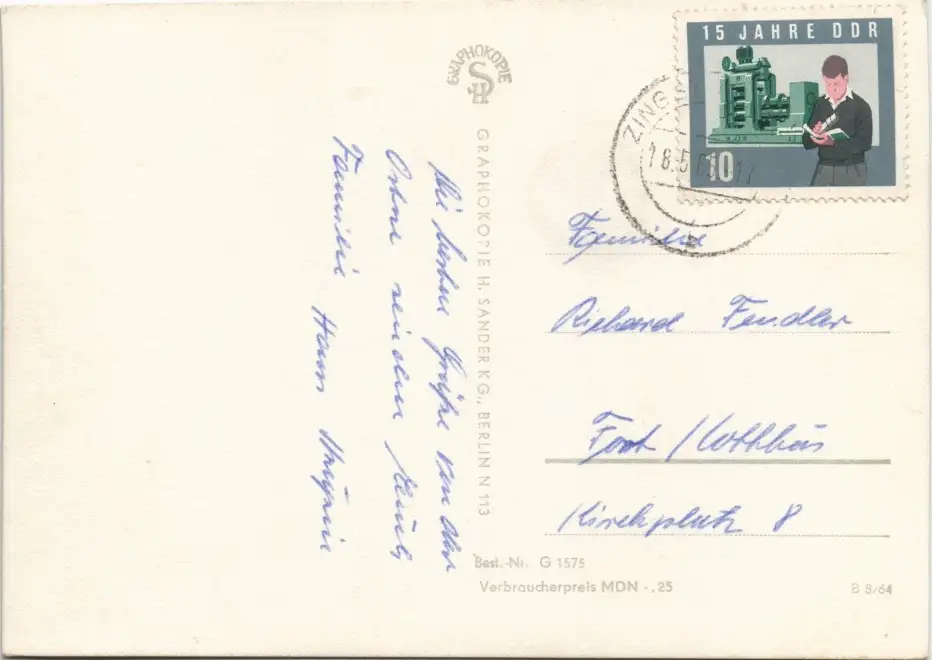 GRAPHOKOPIE
SH
15 JAHRE DDR
10
ZING
18.
Die besten Grüße von der
Ostsee senden Euch
Familie Hans
GRAPHOKOPIE H. SANDER KG., BERLIN N 113
Familie
Richard Fendler
Forst / Cottbus
Kirchplatz 8
Best.-Nr. G 1575
Verbraucherpreis MDN -,25
B 8/64